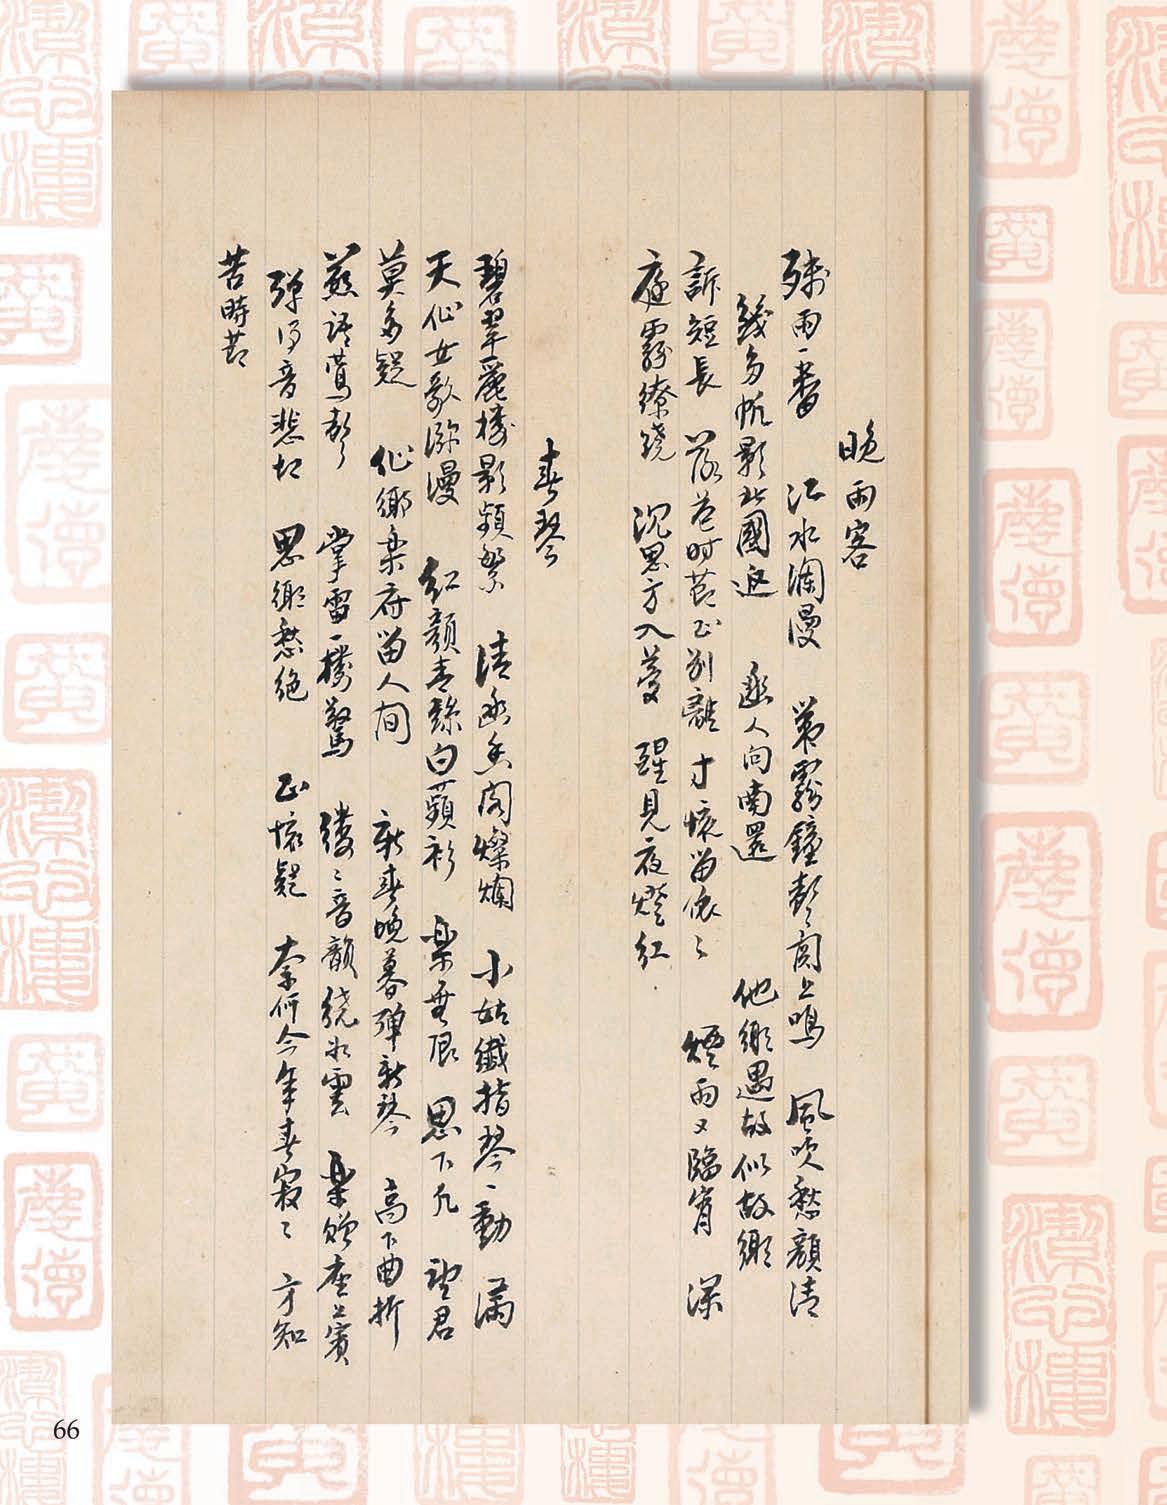 晚雨客
殘雨一番 江水瀾漫 第霧鐘聲聲閣上鳴 風吹愁顏清
幾多帆影北國返 幽人向南還 他鄉遇故似故鄉
訴短長 落花時節正別離 寸懷留依依 煙雨又臨宵 深
庭霧繚繞 沉思方入夢 醒見夜燈紅
春琴
碧翠麗樓影頻繁 清幽香閣燦爛 小姑纖指琴一動 滿
天仙女歌瀰漫 紅顏青絲白蘋衫 樂無限 思下凡 望君
莫多疑 仙鄉樂府留人間 新春晚暮彈新琴 高下曲折
燕語鶯聲 掌雷一樓驚 縷縷音韻繞水雲 樂贈座上賓
彈得音悲切 思鄉愁絕 正懷疑 奈何今年春寂寂 方知
苦時節
66